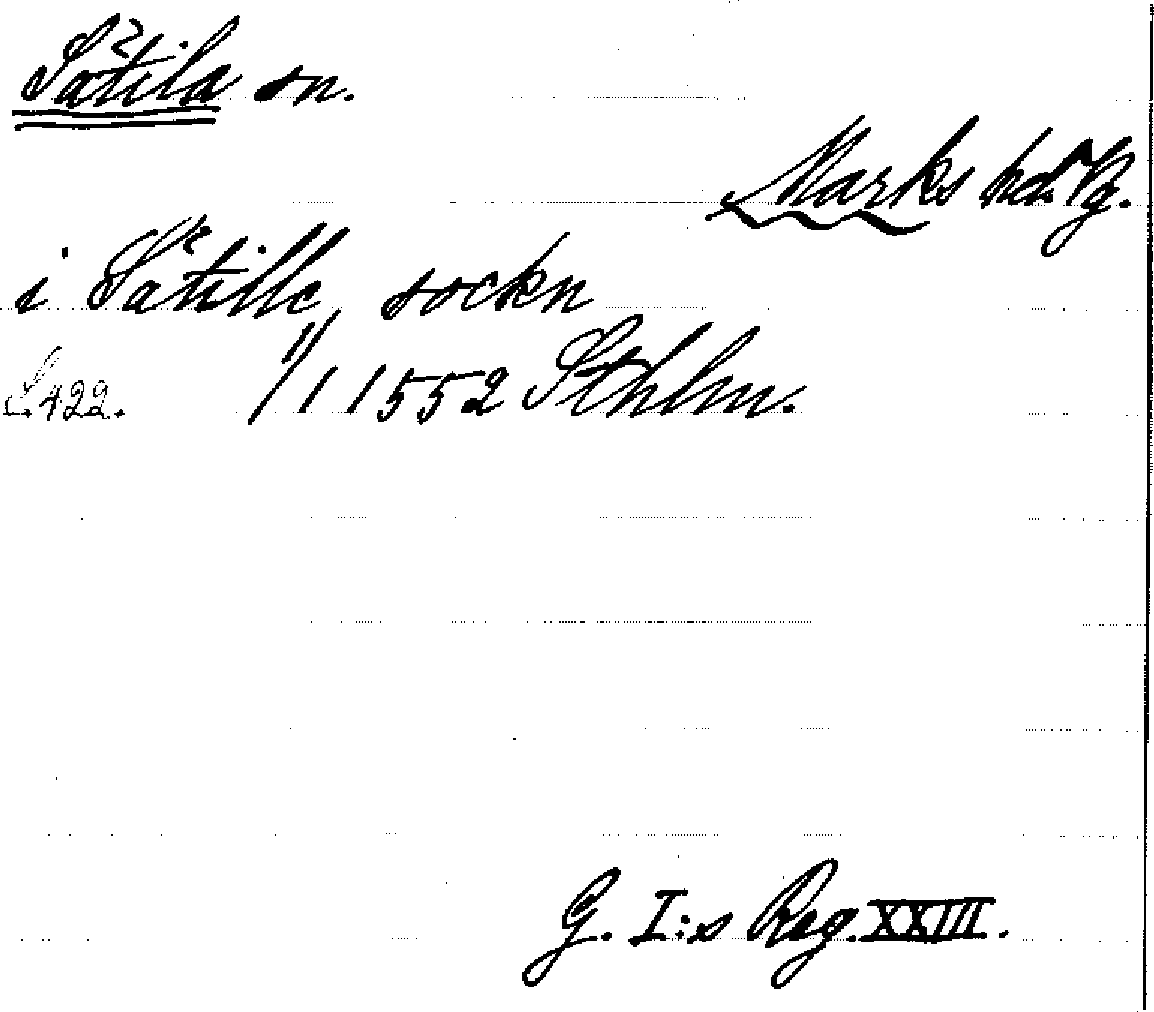 Sätila sn.
Marks hd. Vg.
i Sätille sockn
S. 422. 11/1 1552 Sthlm.
G. I:s Reg. XXIII.